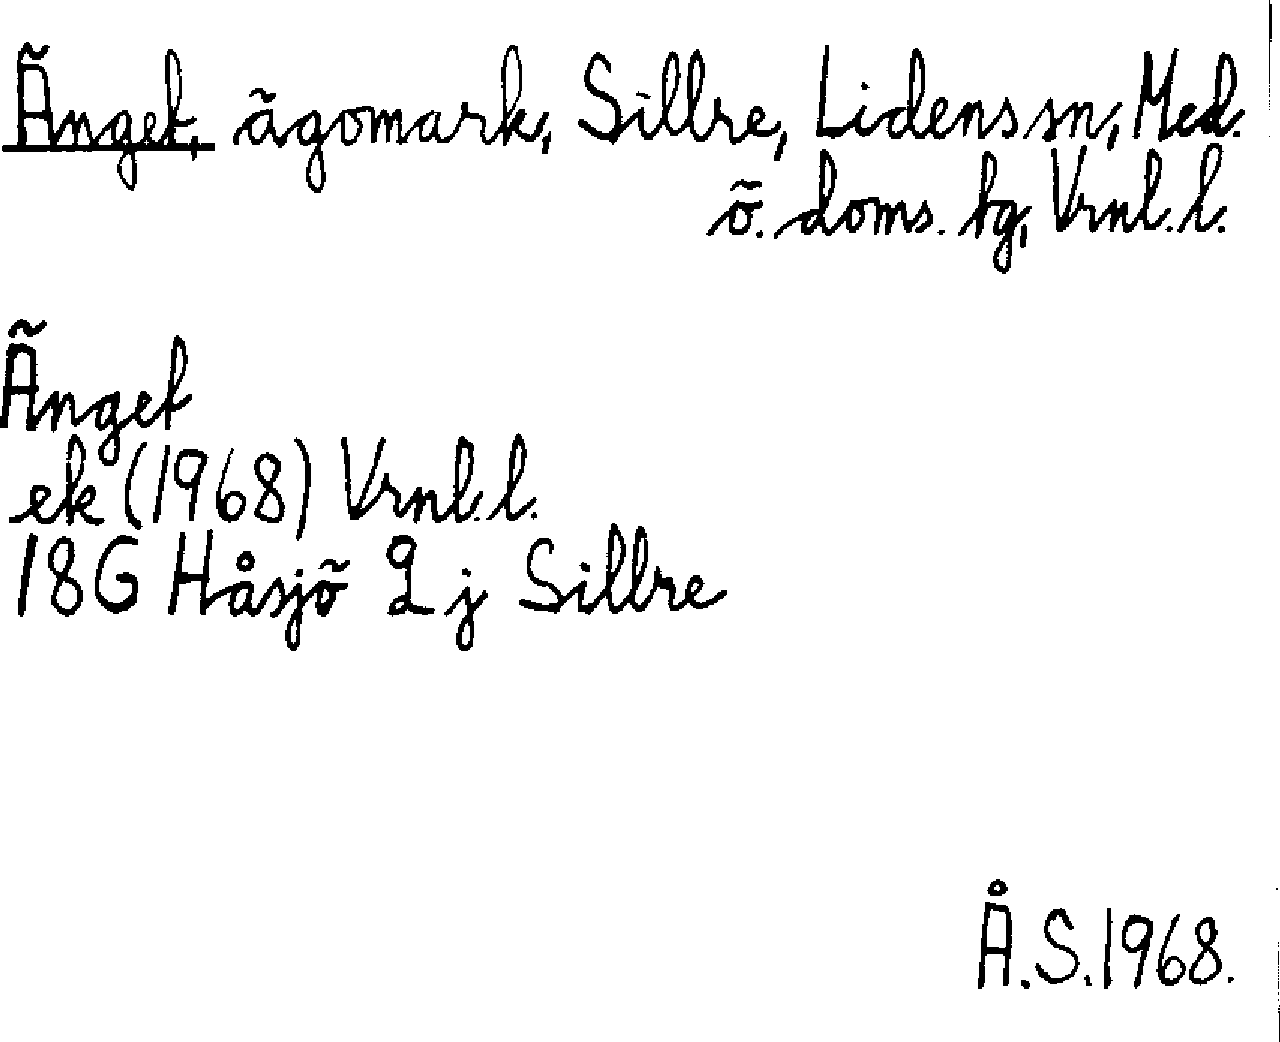 Änget, ägomark, Sillre, Lidens sn, Med.
ö. doms. tg, Vrnl. l.
Änget
ek (1968) Vrnl. l.
18G Håsjö 2 j Sillre
Å.S. 1968.